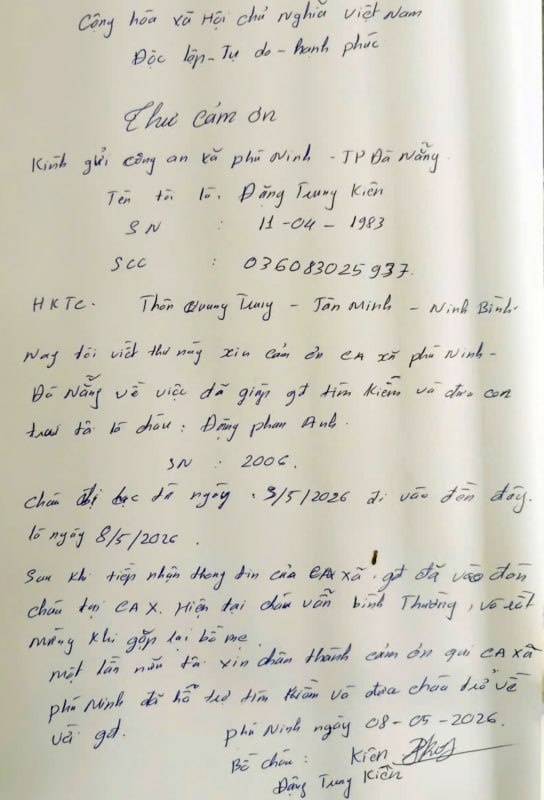 Cộng hòa xã Hội chủ nghĩa việt Nam
Độc lập - Tự do - hạnh phúc
Thư cảm ơn
Kính gửi công an xã phú Ninh - TP Đà Nẵng.
Tên tôi là. Đặng Trung Kiên
SN : 11-04-1983
SCC : 036083025937.
HKTC. Thôn Quang Trung - Tân Minh - Ninh Bình.
Nay tôi viết thư này xin cảm ơn CA xã phú Ninh -
Đà Nẵng về việc đã giúp gđ tìm kiếm và đưa con
trai tôi là cháu: Đặng phan Anh.
SN : 2006.
cháu bị lạc từ ngày 3/5/2026 đi vào đến đây.
là ngày 8/5/2026.
Sau khi tiếp nhận thông tin của CA xã, gđ đã vào đón
cháu tại CA X. Hiện tại cháu vẫn bình Thường, và rất
mừng khi gặp lại bố mẹ.
một lần nữa tôi xin chân thành cảm ơn quí CA xã
phú Ninh đã hỗ trợ tìm kiếm và đưa cháu trở về
với gđ.
phú Ninh ngày 08-05-2026.
Bố cháu: Kiên
Đặng Trung Kiên